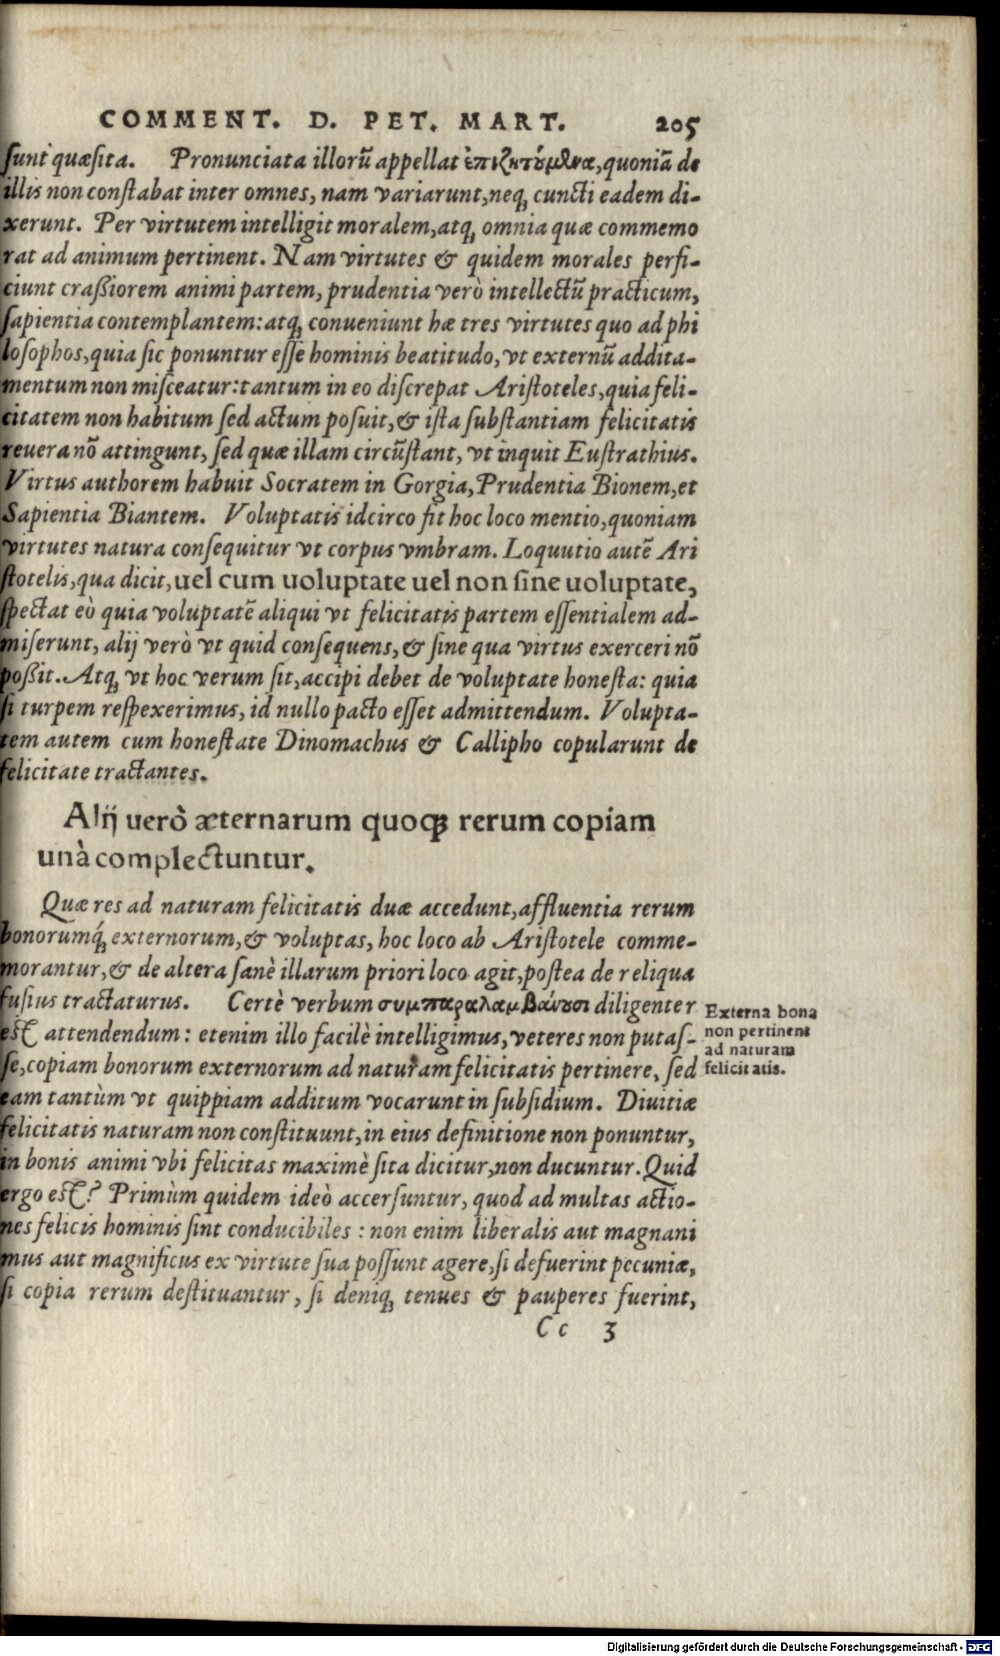 COMMENT. D. PET. MART. 205
sunt quæsita. Pronunciata illorũ appellat ἐπιζητούμενα, quoniã de
illis non constabat inter omnes, nam variarunt, neq; cuncti eadem di-
xerunt. Per virtutem intelligit moralem, atq; omnia quæ commemo
rat ad animum pertinent. Nam virtutes & quidem morales perfi-
ciunt craßiorem animi partem, prudentia verò intellectũ practicum,
sapientia contemplantem: atq; conueniunt hæ tres virtutes quo ad phi
losophos, quia sic ponuntur esse hominis beatitudo, vt externũ addita-
mentum non misceatur: tantum in eo discrepat Aristoteles, quia feli-
citatem non habitum sed actum posuit, & ista substantiam felicitatis
reuera nõ attingunt, sed quæ illam circũstant, vt inquit Eustrathius.
Virtus authorem habuit Socratem in Gorgia, Prudentia Bionem, et
Sapientia Biantem. Voluptatis idcirco fit hoc loco mentio, quoniam
virtutes natura consequitur vt corpus vmbram. Loquutio autẽ Ari
stotelis, qua dicit, uel cum uoluptate uel non sine uoluptate,
spectat eò quia voluptatẽ aliqui vt felicitatis partem essentialem ad-
miserunt, alij verò vt quid consequens, & sine qua virtus exerceri nõ
poßit. Atq; vt hoc verum sit, accipi debet de voluptate honesta: quia
si turpem respexerimus, id nullo pacto esset admittendum. Volupta-
tem autem cum honestate Dinomachus & Callipho copularunt de
felicitate tractantes.
Alij uerò æternarum quoq; rerum copiam
unà complectuntur.
Quæ res ad naturam felicitatis duæ accedunt, affluentia rerum
bonorumq́; externorum, & voluptas, hoc loco ab Aristotele comme-
morantur, & de altera sanè illarum priori loco agit, postea de reliqua
fusius tractaturus. Certè verbum συμπαραλαμβάνουσι diligenter
est attendendum: etenim illo facilè intelligimus, veteres non putas-
se, copiam bonorum externorum ad naturam felicitatis pertinere, sed
eam tantùm vt quippiam additum vocarunt in subsidium. Diuitiæ
felicitatis naturam non constituunt, in eius definitione non ponuntur,
in bonis animi vbi felicitas maximè sita dicitur, non ducuntur. Quid
ergo est? Primùm quidem ideò accersuntur, quod ad multas actio-
nes felicis hominis sint conducibiles: non enim liberalis aut magnani
mus aut magnificus ex virtute sua possunt agere, si defuerint pecuniæ,
si copia rerum destituantur, si deniq; tenues & pauperes fuerint,
Cc 3
Externa bona
non pertinent
ad naturam
felicitatis.
Digitalisierung gefördert durch die Deutsche Forschungsgemeinschaft - DFG